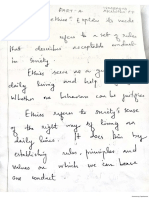 PART-A
Ethics" Explain its needs
refers to a set of rules
that describes acceptable conduct
in Society
Ethics serve as a gu
daily living and help
whether our behaviour can be justified
Ethics refers to society's sense
of the right way of living our
daily lives. It does this by
establishing rules, principles and
values on which we can base
our conduct